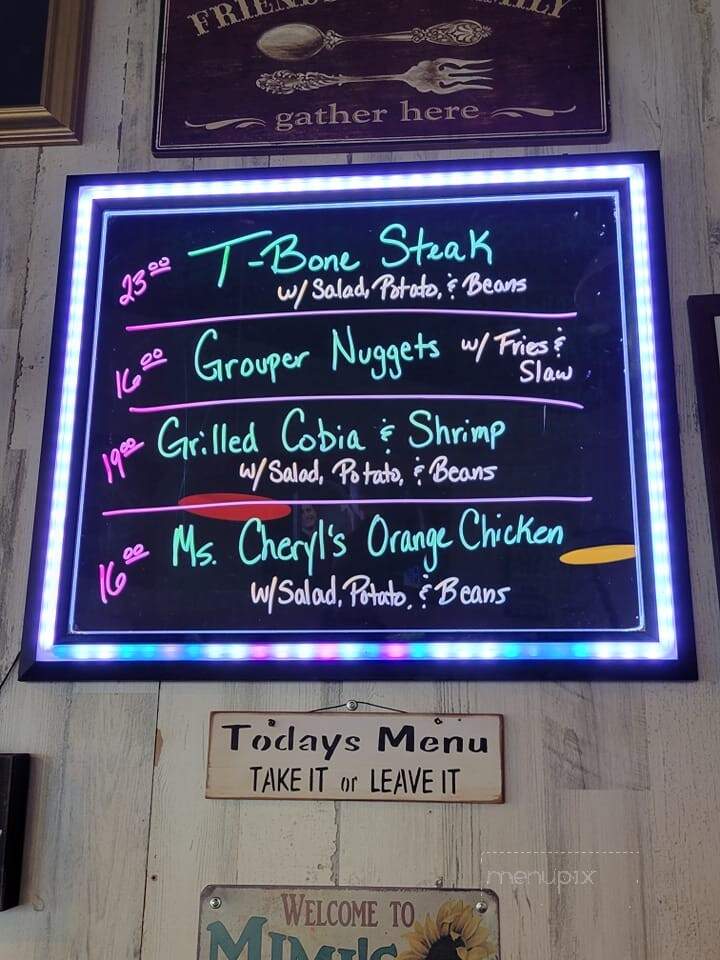 FRIENDS
gather here
23.00 T-Bone Steak
w/ Salad, Potato, & Beans
16.00 Grouper Nuggets w/ Fries &
Slaw
19.00 Grilled Cobia & Shrimp
w/ Salad, Potato, & Beans
16.00 Ms. Cheryl's Orange Chicken
w/ Salad, Potato, & Beans
Todays Menu
TAKE IT or LEAVE IT
menupix
WELCOME TO
MIMI'S